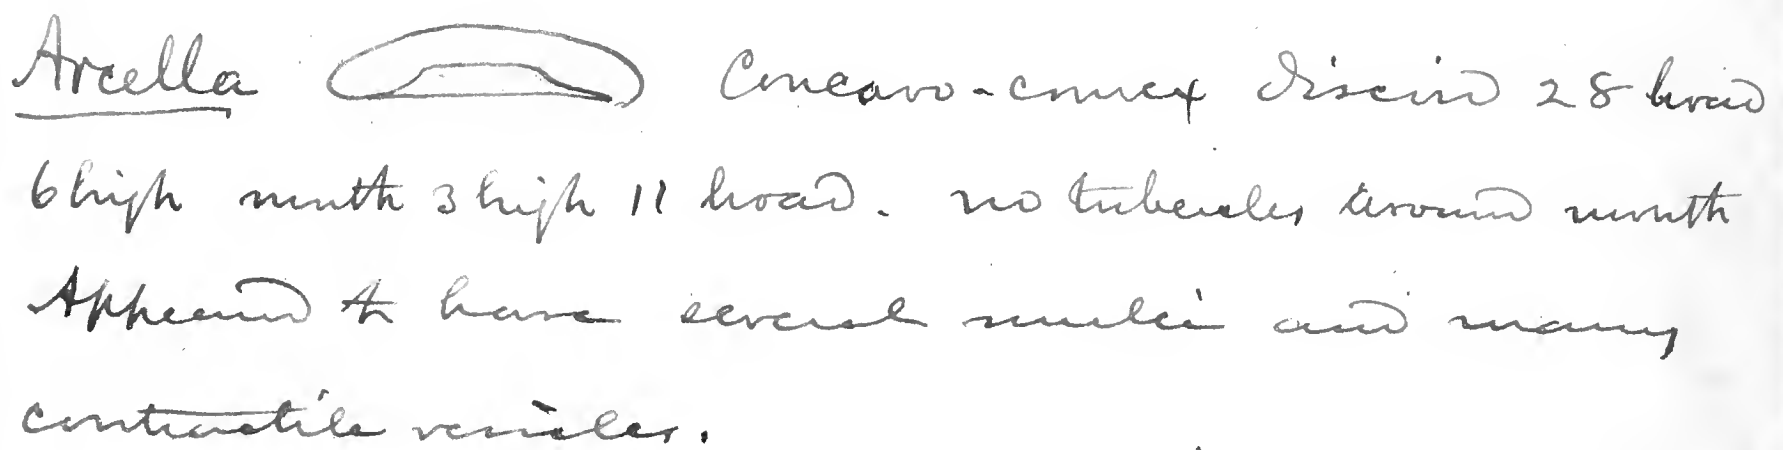 Arcella Concavo-convex discoid 28 broad
6 high mouth 3 high 11 broad. no tubercles around mouth
Appeared to have several nuclei and many
contractile vesicles.